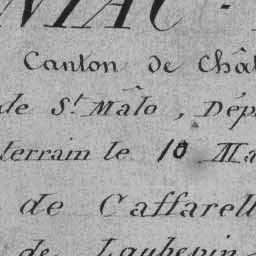 NIAC -
Canton de Chât
de St. Mâlo, Dép
terrain le 10 Ma
de Caffarell
de Laubepin